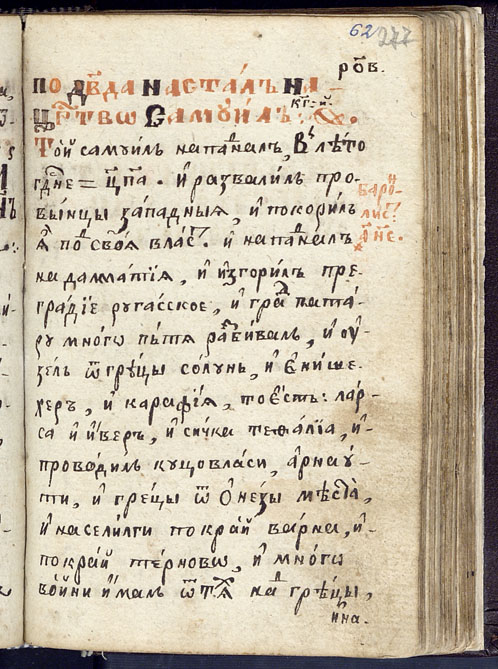 62 277
рв҃.
по дв҃да настал̾ъ на
цр҃тво Самоуилъ: кг҃: й:
Той самуиль напаⷣналъ, въ лѣто
гдⷭ҇не = ц҃па. и развалилъ про-
вынцы западныя, и покорилъ
я поⷣ своя власⷮ. и напаⷣналъ
на далматїя, и изгорилъ пре-
градїе ругасское, и граⷣ
ру много пътя раⷥбивалъ, и оу-
зелъ ѿ грѣцы солунь, и Енише-
херъ, и карафїя, тоестъ: лар-
са и иверъ, и сичка тефалїа, и-
проводилъ куцовласи, арнау-
ти, и грецы ѿ Онезы мѣста,
и населилги покрай варна, и-
покрай терново, и много
войни ималъ ѿтꙋ наⷣ грѣцы,
ина.